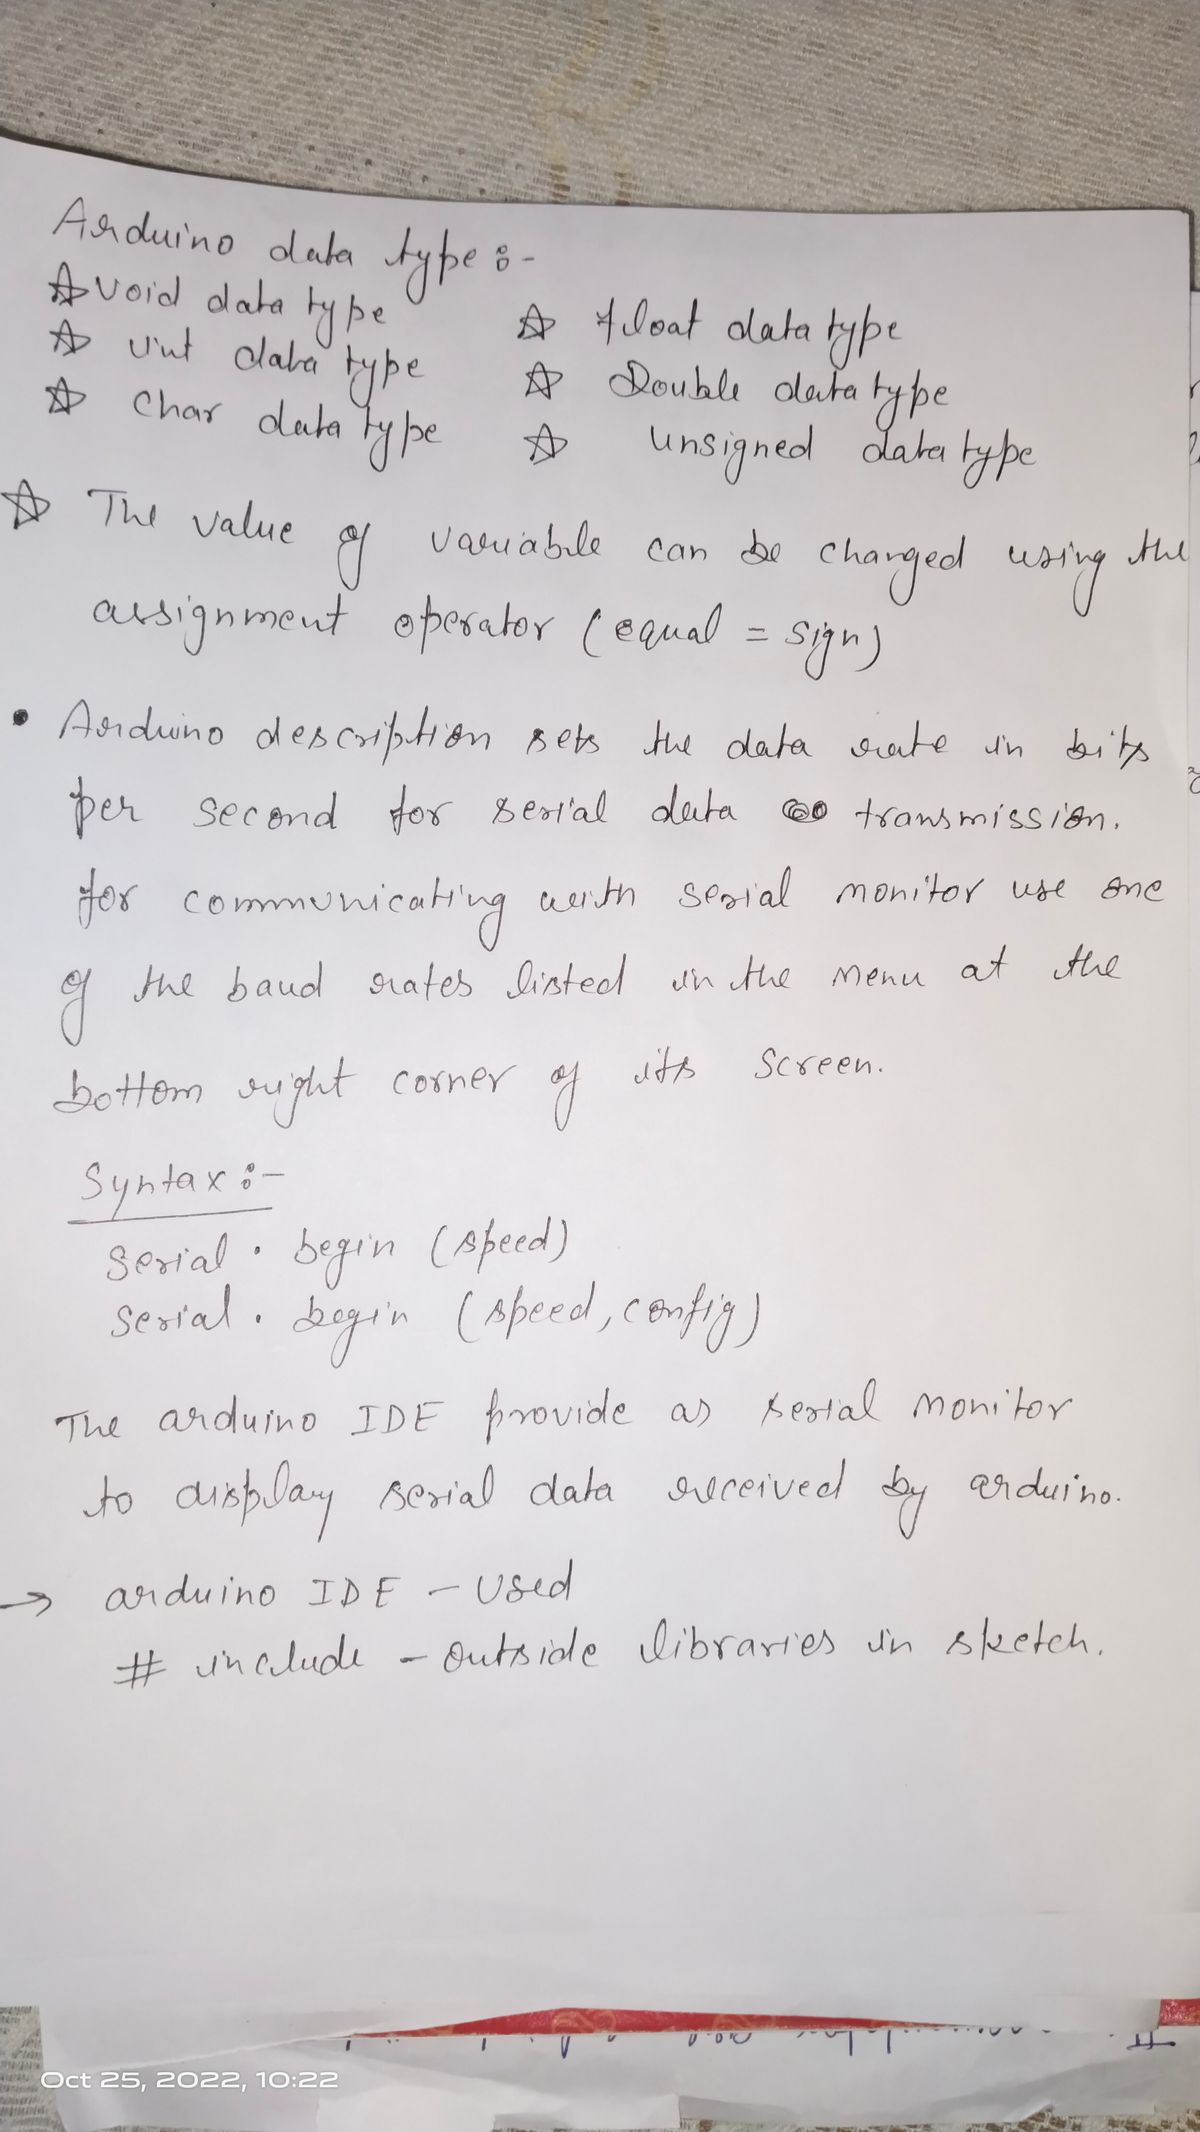 Arduino data type :-
☆ void data type
☆ int data type
☆ char data type
☆ float data type
☆ Double data type
☆ unsigned data type
☆ The value of variable can be changed using the
assignment operator (equal = sign)
• Arduino description sets the data rate in bits
per second for serial data transmission.
for communicating with serial monitor use one
of the baud rates listed in the menu at the
bottom right corner of its screen.
Syntax :-
serial . begin (speed)
serial . begin (speed, config)
The arduino IDE provide as serial monitor
to display serial data received by arduino.
→ arduino IDE - Used
# include - outside libraries in sketch.
Oct 25, 2022, 10:22